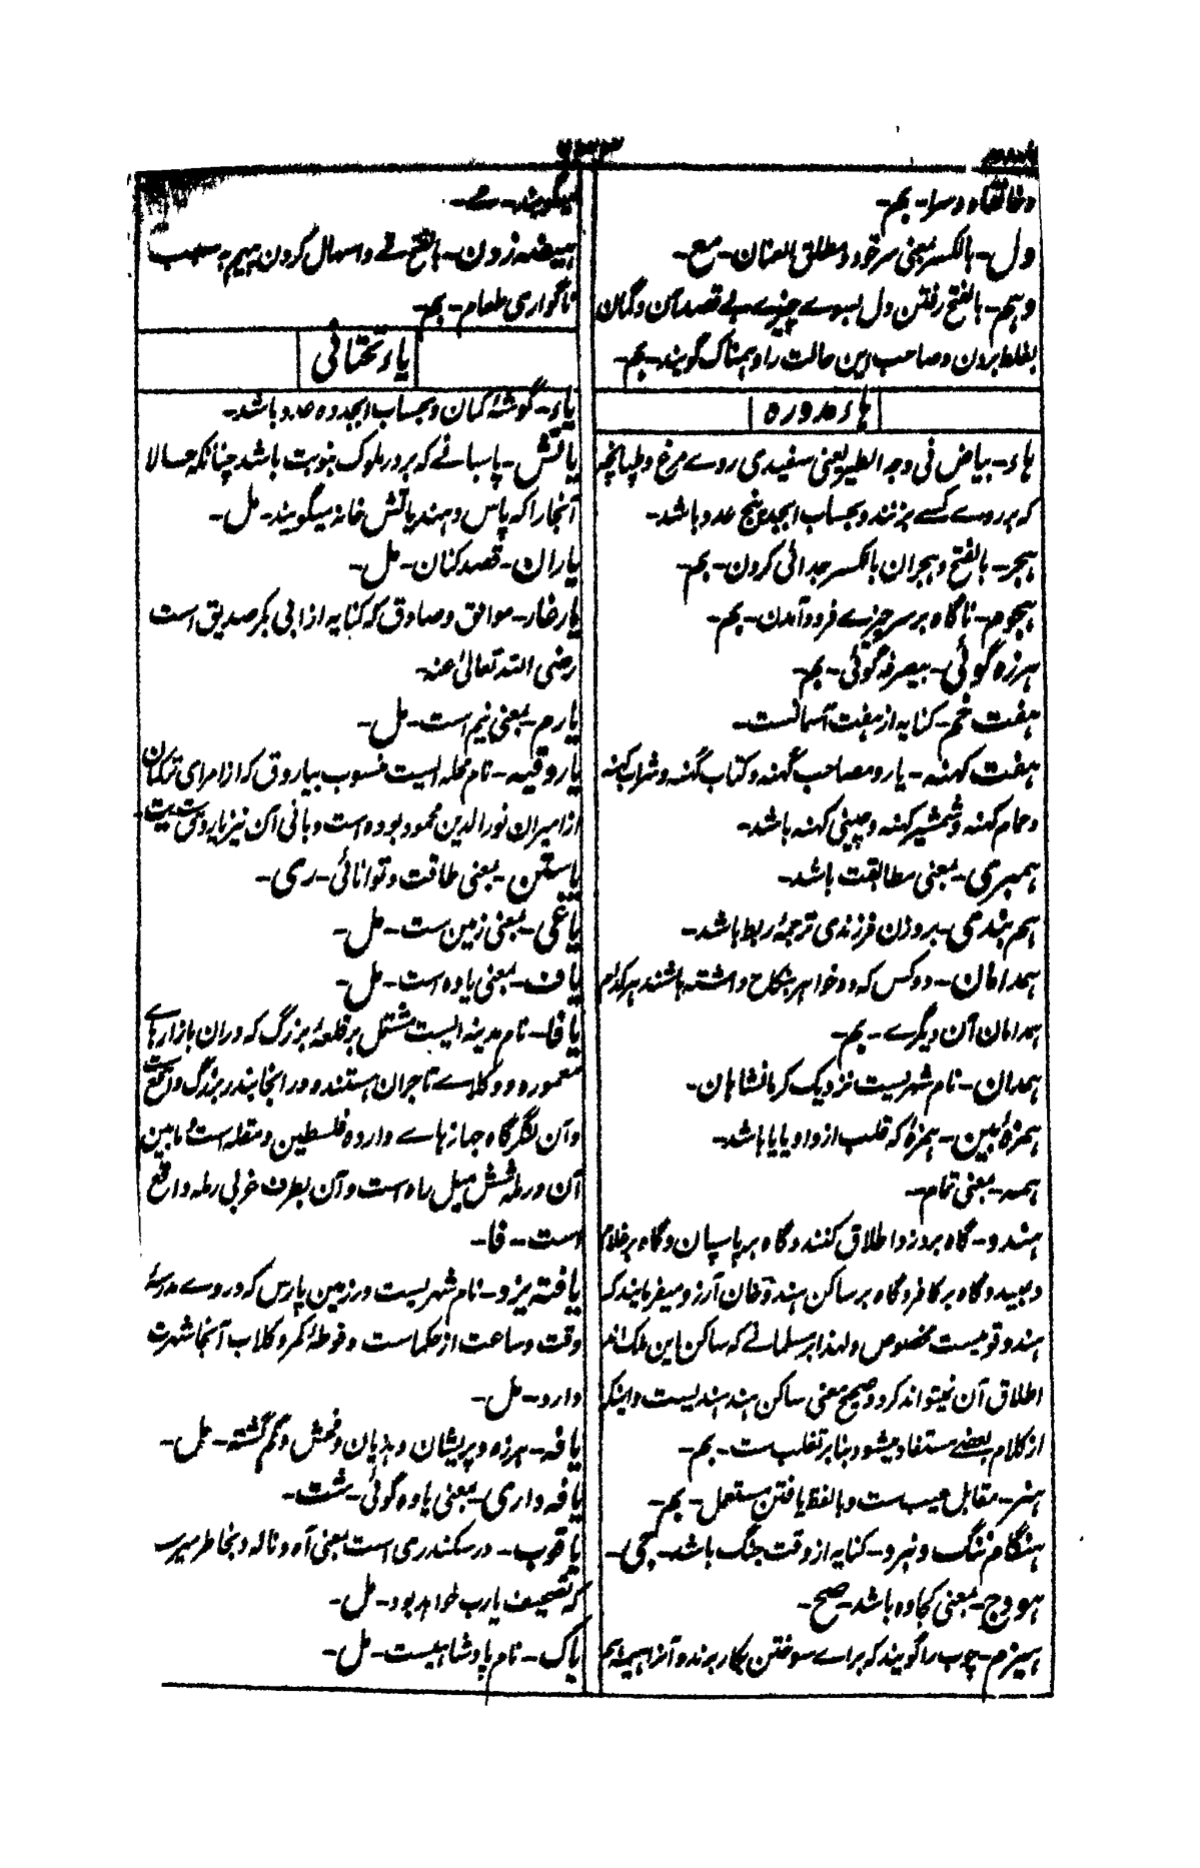 ۷۳۳
وخانقاه و سرا - بم -
ول - بالکسر بمعنی سرخود و مطلق العنان - مع -
وہم - بالفتح رفتن دل بسوے چیزے بے قصد آن و گمان
بغلط بردن و صاحب این حالت را وہمناک گویند - بم -
ہاء مدورہ
ہاء - بیاض فی وجہ الطیر یعنی سفیدی روے مرغ و طپانچہ
کہ بر روے کسے بزنند و بحساب ابجد پنج عدد باشد -
ہجر - بالفتح و ہجران بالکسر جدائی کردن - بم -
ہجوم - ناگاہ بر سر چیزے فرود آمدن - بم -
ہرزہ گوئی - بیصرفہ گوئی - بم -
ہفت خم - کنایہ از ہفت آسمانست -
ہفت کہنہ - یار و مصاحب کہنہ و کتاب کہنہ و شراب کہنہ
و حمام کہنہ و شمشیر کہنہ و چینی کہنہ باشد -
ہمبری - بمعنی مطابقت باشد -
ہم بندی - بروزن فرزندی ترجمۂ ربط باشد -
ہمدامان - دو کس کہ دو خواہر بنکاح داشتہ باشند ہر کدام
ہمدامان آن دیگرے - بم -
ہمدان - نام شہریست نزدیک کرمانشاہان -
ہمزۂ بین - ہمزۂ کہ قلب از واو یا یا باشد -
ہمہ - بمعنی تمام -
ہندو - گاہ بر دزد اطلاق کنند و گاہ بر پاسبان و گاہ بر غلام
و عبید و گاہ بر کافر و گاہ بر ساکن ہند و خان آرزو میفرمایند کہ
ہندو قومیست مخصوص و لہذا بر مسلمانے کہ ساکن این ملک اند
اطلاق آن نمیتواند کرد و صحیح معنی ساکن ہند ہندیست و اینکہ
از کلام بعضے مستفاد میشود بنا بر تغلب ست - بم -
ہنر - مقابل عیب ست و بالفظ یافتن مستعمل - بم -
ہنگام ننگ و نبرد - کنایہ از وقت جنگ باشد - چی -
ہودج - بمعنی کجاوہ باشد - صح -
ہیزم - چوب را گویند کہ براے سوختن بکار برند و آنرا ہیمہ ہم
میگویند - سے -
ہیضہ زدن - بالفتح قے و اسہال کردن پیہم بہ سبب
ناگواری طعام - بم -
یاء تحتانی
یاء - گوشۂ کمان و بحساب ابجد دہ عدد باشد -
یاتش - پاسبانے کہ بر در ملوک بنوبت باشد چنانکہ حالا
آنجا را کہ پاس دہند یاتش خانہ میگویند - مل -
یاران - قصد کنان - مل -
یار غار - موافق و صادق کہ کنایہ از ابی بکر صدیق است
رضی اللہ تعالیٰ عنہ -
یارم - بمعنی نیم است - مل -
یاروقیہ - نام محلہ ایست منسوب بیاروق کہ از امرای ترکمان
از امیران نور الدین محمود بودہ است و بانی آن نیز یاروق ست
یاستن - بمعنی طاقت و توانائی - ری -
یاغی - بمعنی زمین ست - مل -
یاف - بمعنی یاوہ است - مل -
یافا - نام مدینہ ایست مشتمل بر قلعۂ بزرگ کہ دران بازارہاے
معمورہ و وکلاے تاجران استند و در انجا بندر بزرگ واقع ست
و آن لنگرگاہ جہازہاے واردہ فلسطین و مقلہ است مابین
آن و رملہ شش میل راہ است و آن بطرف غربی رملہ واقع
است - فا -
یافتہ یزد - نام شہریست در زمین پارس کہ در وے مدرسۂ
وقت و ساعت از حکماست و فوطۂ کمر و کلاب آنجا شہرت
دارد - مل -
یافہ - ہرزہ و پریشان و ہذیان و فحش و گم گشتہ - مل -
یافہ داری - بمعنی یاوہ گوئی - شت -
یاقوب - در سکندری است بمعنی آہ و نالہ و بخاطر میرسد
کہ تصحیف یارب خواہد بود - مل -
یاک - نام پادشاہیست - مل -